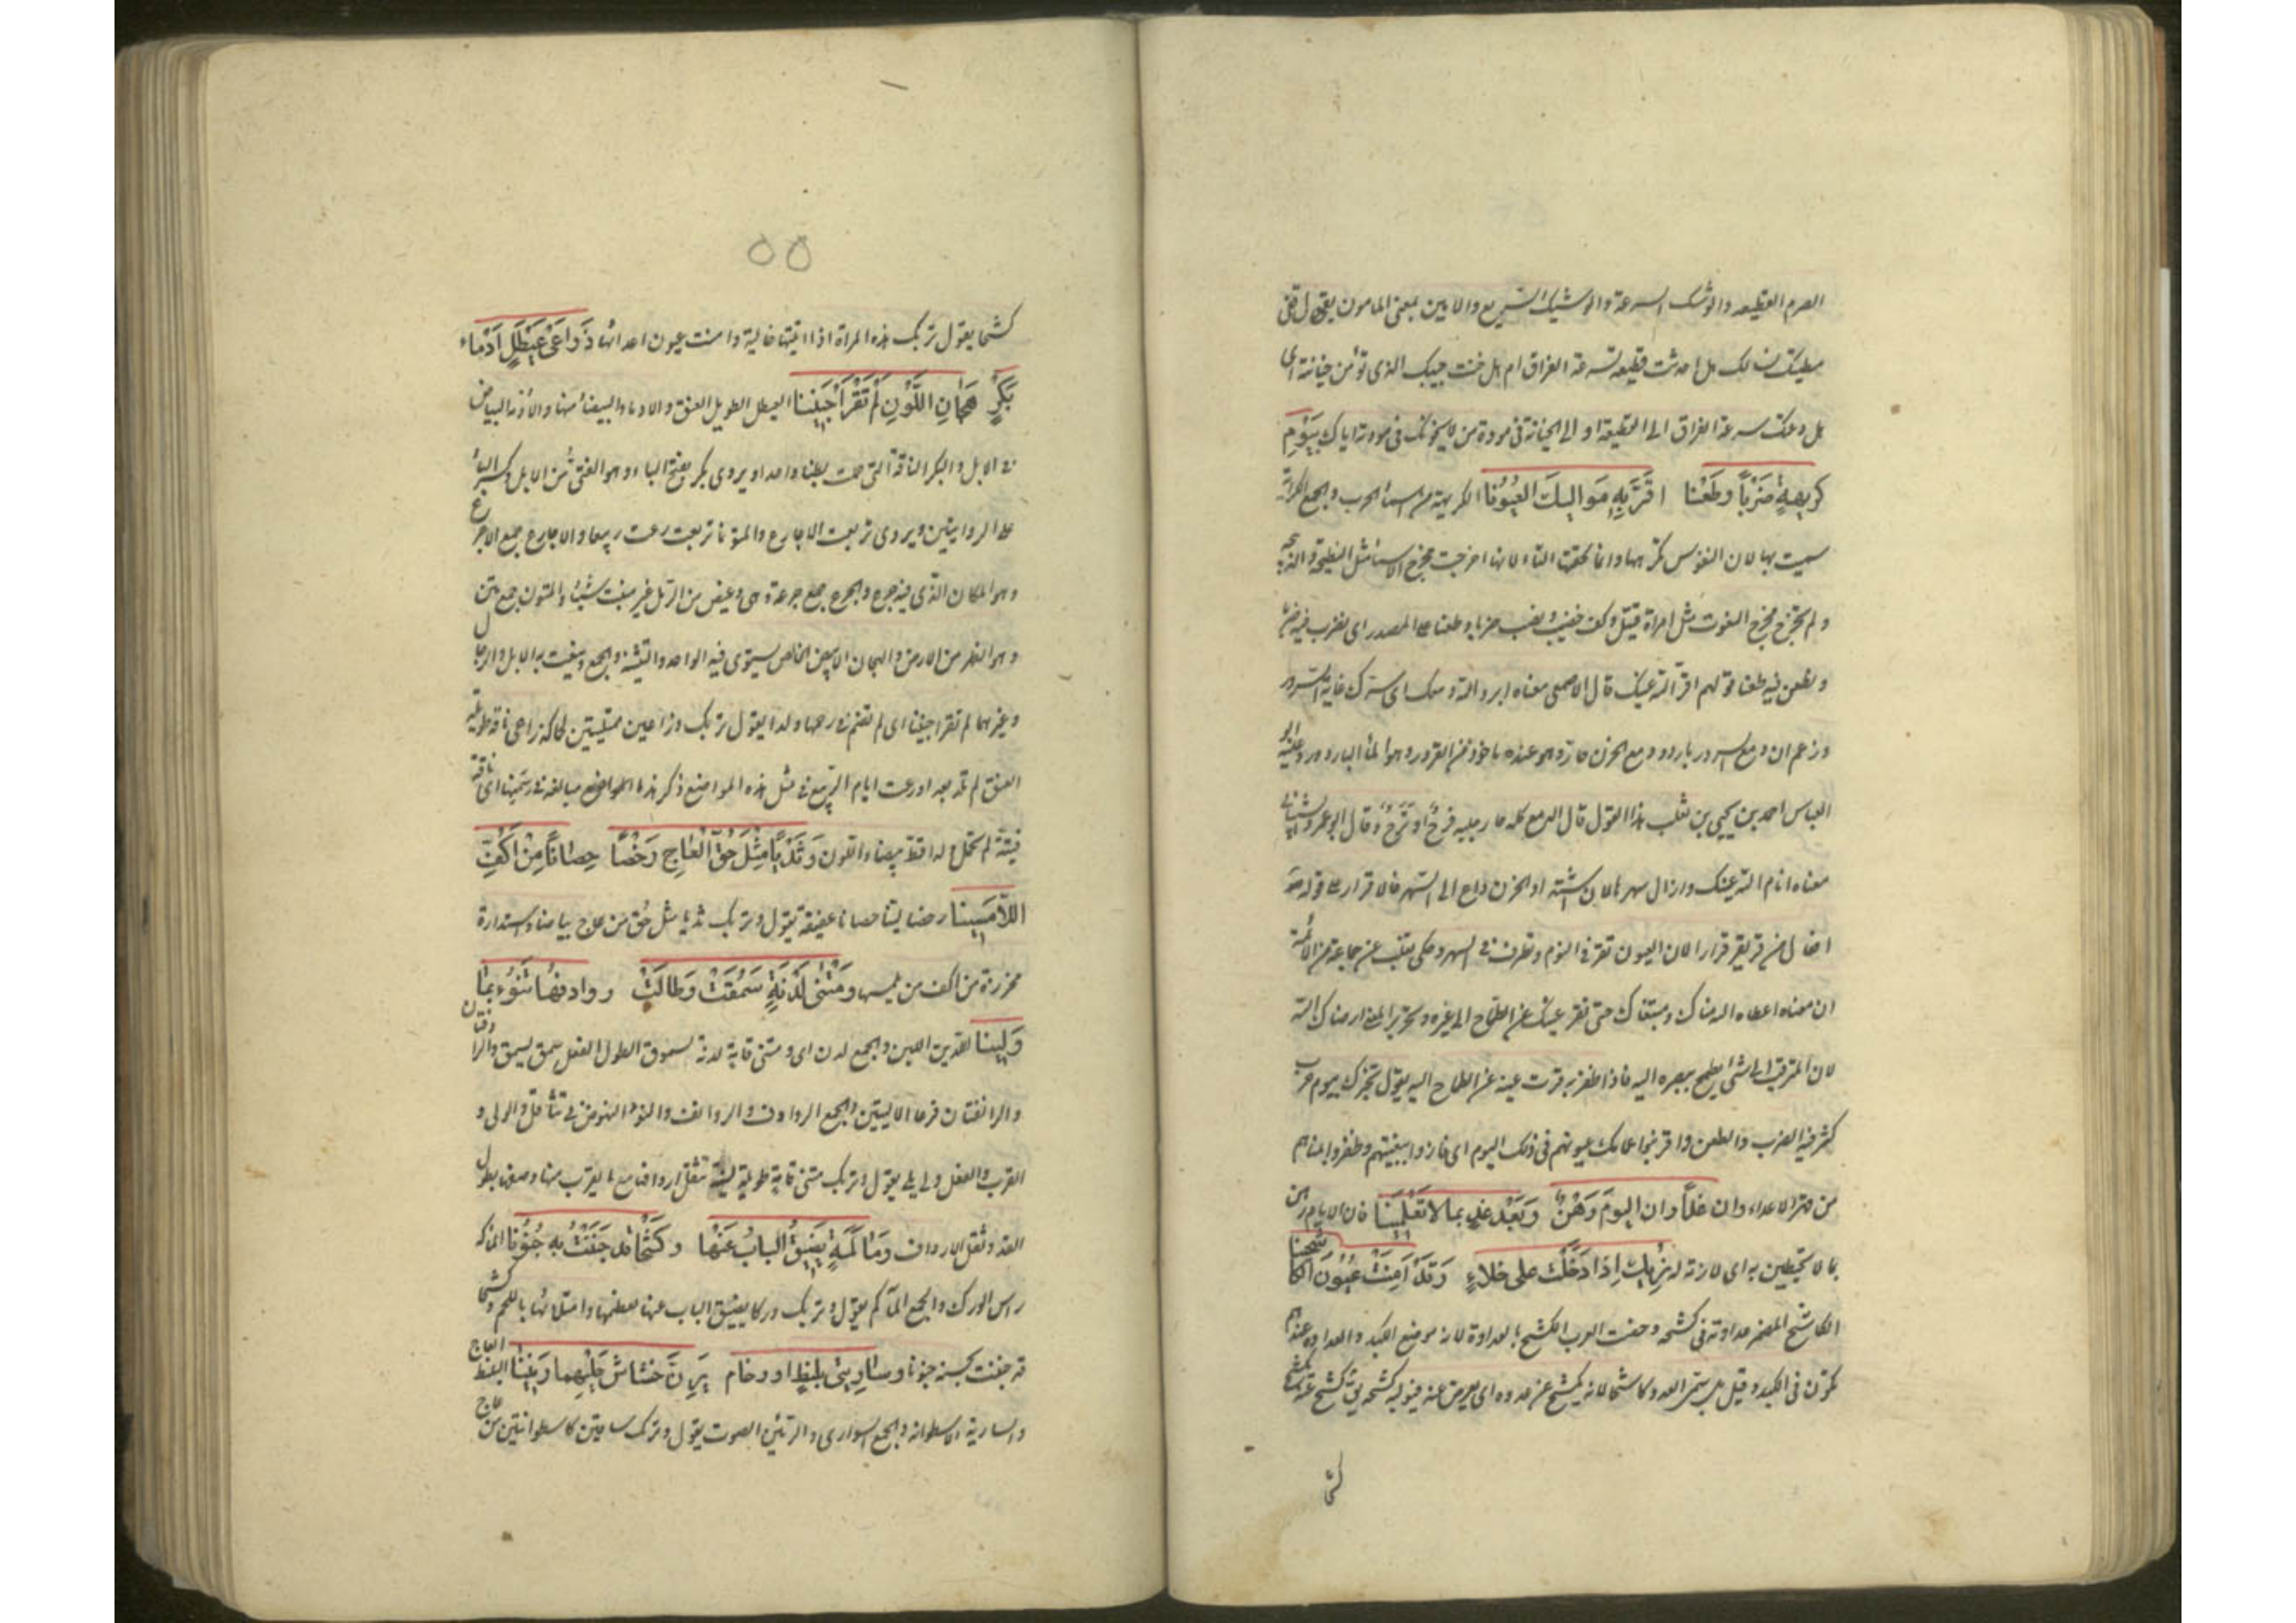 الصرم القطيعه والوشك السرعة والوشيك السريع والامين بمعنى المامون يقول قفى
مطيتك نسالك هل احدثت قطيعة لسرعة الفراق ام هل خنت حبيبك الذى تؤمن خيانته اى
هل دعتك سرعة الفراق الى القطيعة او الى الخيانة فى مودة من لا يخونك فى مودته اياك بِيَوْمِ
كَرِيهَةٍ ضَرْباً وطَعْنا اقَرَّ بِهِ مَوَالِيكِ العُيُونا الكريهة من اسماء الحرب والجمع الكرائه
سميت بها لان النفوس تكرهها وانما لحقتها التاء لانها اخرجت مخرج الاسماء مثل النطيحة والذبيحة
ولم تخرج مخرج النعوت مثل امراة قتيل وكف خضيب ونصب ضربا وطعنا على المصدر اى يضرب فيه ضربا
ويطعن فيه طعنا قولهم اقر الله عينك قال الاصمعى معناه ابرد الله دمعك اى سرك غاية السرور
وزعم ان دمع السرور بارد ودمع الحزن حار وهو عنده ماخوذ من القرور وهو الماء البارد ورد عليه ابو
العباس احمد بن يحيى بن ثعلب هذا القول قال الدمع كله حار جلبه فرح او ترح وقال ابو عمرو الشيبانى
معناه انام الله عينك وازال سهرها لان الحزن داع الى السهر فالاقرار على قوله
افعال من قر يقر قرارا لان العيون تقر فى النوم وتطرف فى السهر وحكى ثعلب عن جماعة من الائمة
ان معناه اعطاك الله مناك ومبتغاك حتى تقر عينك عن الطماح الى غيره وتحرير المعنى ارضاك الله
لان المترقب الى الشئ يطمح ببصره اليه فاذا ظفر به قرت عينه عن الطماح اليه يقول نخبرك بيوم حرب
كثر فيه الضرب والطعن واقر بنوا عمك عيونهم فى ذلك اليوم اى فازوا ببغيتهم وظفروا بمناهم
من قهر الاعداء وان غداً وان اليومَ رَهْنٌ وَبَعْدَ غدٍ بما لا تَعْلَمِينَا فان الايام رهن
بما لا تحيطين به اى ملازمة له تُرِيكَ اِذَا دَخَلْتَ على خلاءٍ وَقَدْ اَمِنَتْ عُيُونَ الكاشحينا
الكاشح المضمر عداوته فى كشحه وخصت العرب الكشح بالعداوة لانه موضع الكبد والعداوة عندهم
تكون فى الكبد وقيل بل سمى العدو كاشحا لانه يكشح عن عدوه اى يعرض عنه فيوليه كشحه يقال كشح عنه يكشح
كشحا يقول تريك هذه المراة اذا اتيتها خالية وامنت عيون اعدائها ذِرَاعَىْ عَيْطَلٍ اَدْمَاءَ
بَكْرٍ هِجَانِ اللَّوْنِ لَمْ تَقْرَأْ جَنِينَا العيطل الطويل العنق والادماء البيضاء منها والادمة البياض
فى الابل والبكر الناقة التى حملت بطنا واحدا ويروى بكر بفتح الباء وهو الفتى من الابل وكسر الباء
على الروايتين ويروى تربعت الاجارع والمتونا تربعت رعت ربيعا والاجارع جمع الاجرع
وهو المكان الذى فيه جرع والجرع جمع جرعة وهى دعص من الرمل غير منبت شيئا والمتون جمع متن
وهو الظهر من الارض والهجان الابيض الخالص يستوى فيه الواحد والتثنية والجمع وينعت به الابل والرجال
وغيرهما لم تقرا جنينا اى لم تضم فى رحمها ولدا يقول تريك ذراعين ممتلئتين لحما كذراعى ناقة طويلة
العنق لم تلد بعد او رعت ايام الربيع فى مثل هذه المواضع ذكر هذا مبالغة فى سمنها اى ناقة
فتية لم تحمل ولدا قط بيضاء اللون وَثَدْياً مِثْلَ حُقِّ الْعَاجِ رَخْصاً حِصَاناً مِنْ اَكُفِّ
اللاَّمِسِينا رخصا لينا حصانا عفيفة يقول وتريك ثديا مثل حُق من عاج بياضا واستدارة
محرزة من اكف من يلمسها ومَتْنَى لَدْنَةٍ سَمُقَتْ وَطَالَتْ روادفُها تَنُوءُ بِمَا
وَلِينا اللدن اللين والجمع لدن اى ومتنى قامة لدنة السموق الطول الفعل سمق يسمق والرادفتان
والرانفتان فرعا الاليتين والجمع الروادف والروانف والنوء النهوض فى تثاقل والولى
القرب والفعل ولى يلى يقول وتريك متنى قامة طويلة لينة تثقل اردافها مع ما يقرب منها وصفها بطول
القد وثقل الارداف وَمَاكَمَةً يَضِيقُ البَابُ عَنْهَا وكَشْحاً قد جُنِنْتُ بِهِ جُنُونَا الماكمة
راس الورك والجمع المآكم يقول وتريك وركا يضيق الباب عنها لعظمها وامتلائها باللحم وكشحا
قد جننت بحسنه جنونا وساريتى بلنطٍ او رخام يَرِنُّ خَشَاشُ حَلْيِهِما رَنِينا البلنط العاج
والسارية الاسطوانة والجمع السوارى والرنين الصوت يقول وتريك ساقين كاسطوانتين من عاج